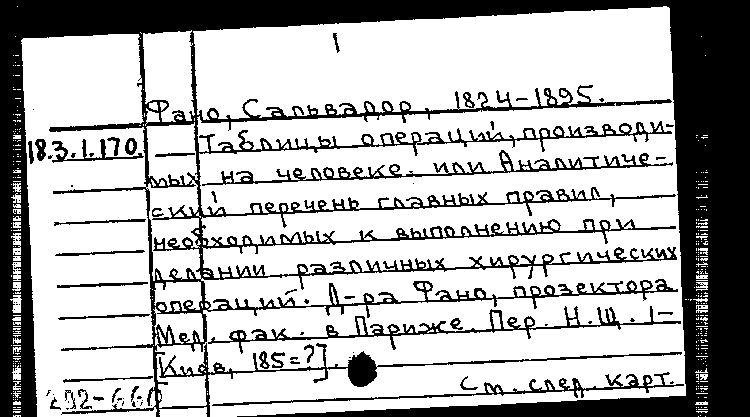 1
Фано, Сальвадор, 1824-1895.
18.3.1.170. Таблицы операций, производи-
мых на человеке. или Аналитиче-
ский перечень главных правил,
необходимых к выполнению при
делании различных хирургических
операций. Д-ра Фано, прозектора
Мед. фак. в Париже. Пер. Н.Щ. 1-
[Киев, 185=?].
292-660 См. след. карт.